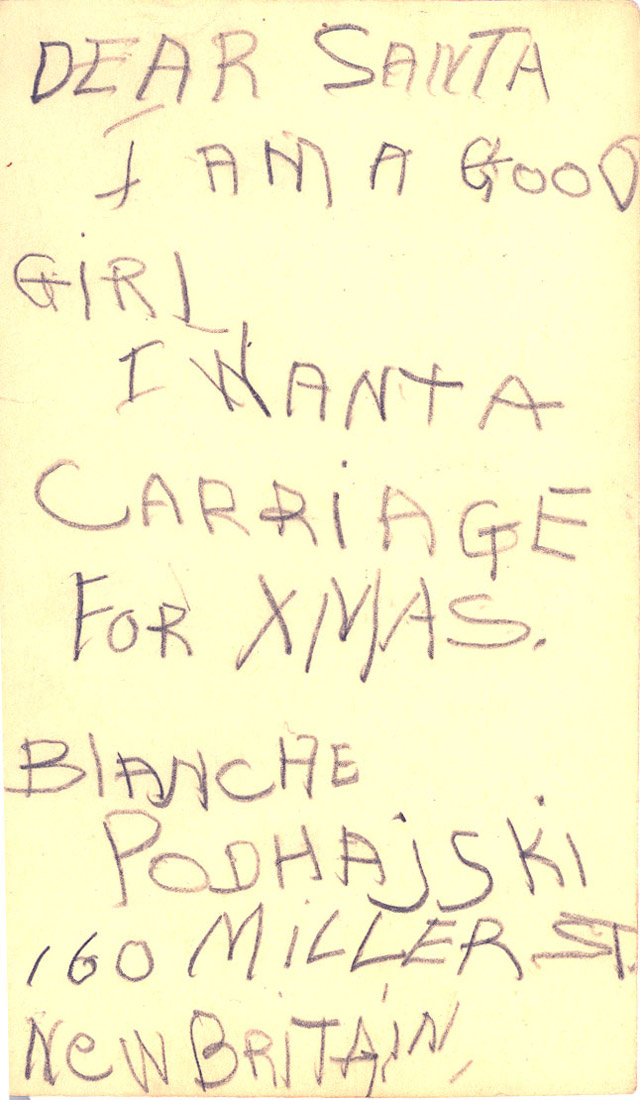 DEAR SANTA
I AM A GOOD
GiRL
I WANT A
CARRiAGE
FOR XMAS.
BlANCHE
PODHAjSKi
160 MiLLER ST.
NeW BRiTAiN,